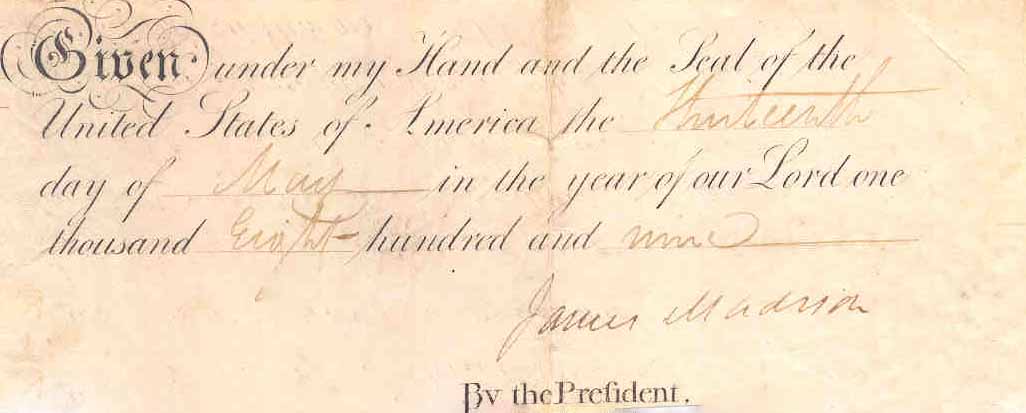 Given under my Hand and the Seal of the
United States of America, the Thirteenth
day of May in the year of our Lord one
thousand Eight hundred and nine
James Madison
By the Preſident,